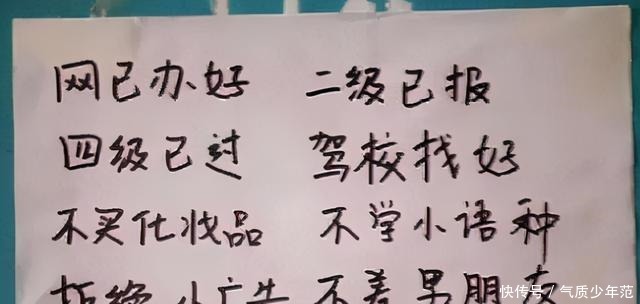 网已办好 二级已报
四级已过 驾校找好
不买化妆品 不学小语种
拒绝小广告 不差男朋友
快传号/气质少年范